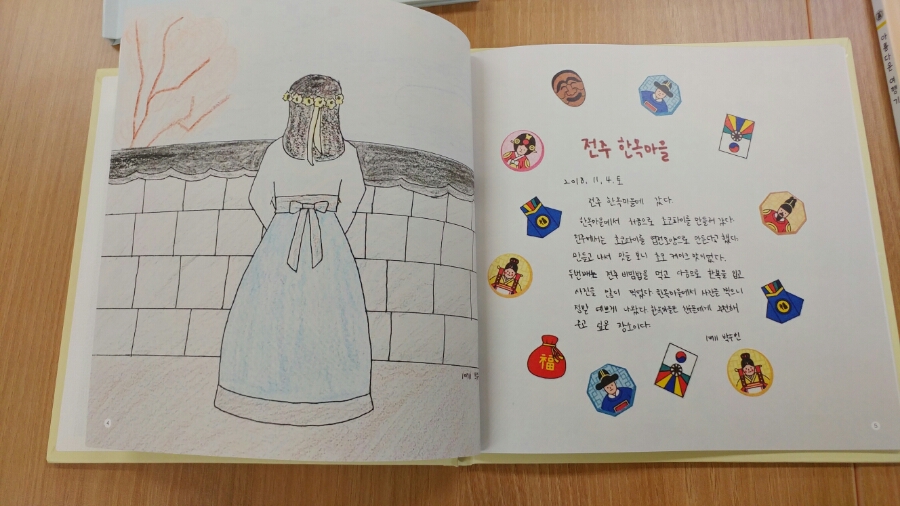 전주 한옥마을
2018. 11. 4. 토
전주 한옥마을에 갔다.
한옥마을에서 처음으로 초코파이를 만들러 갔다
전주에서는 초코파이를 만든다고 했다.
만들고 나서 먹어 보니 초코 케이크 맛이었다.
두번째는 전주 비빔밥을 먹고 다음으로 한복을 입고
사진을 많이 찍었다 한옥마을에서 사진을 찍으니
정말 예쁘게 나왔다 한옥마을은 추천해
주고 싶은 장소이다.
福
4
5